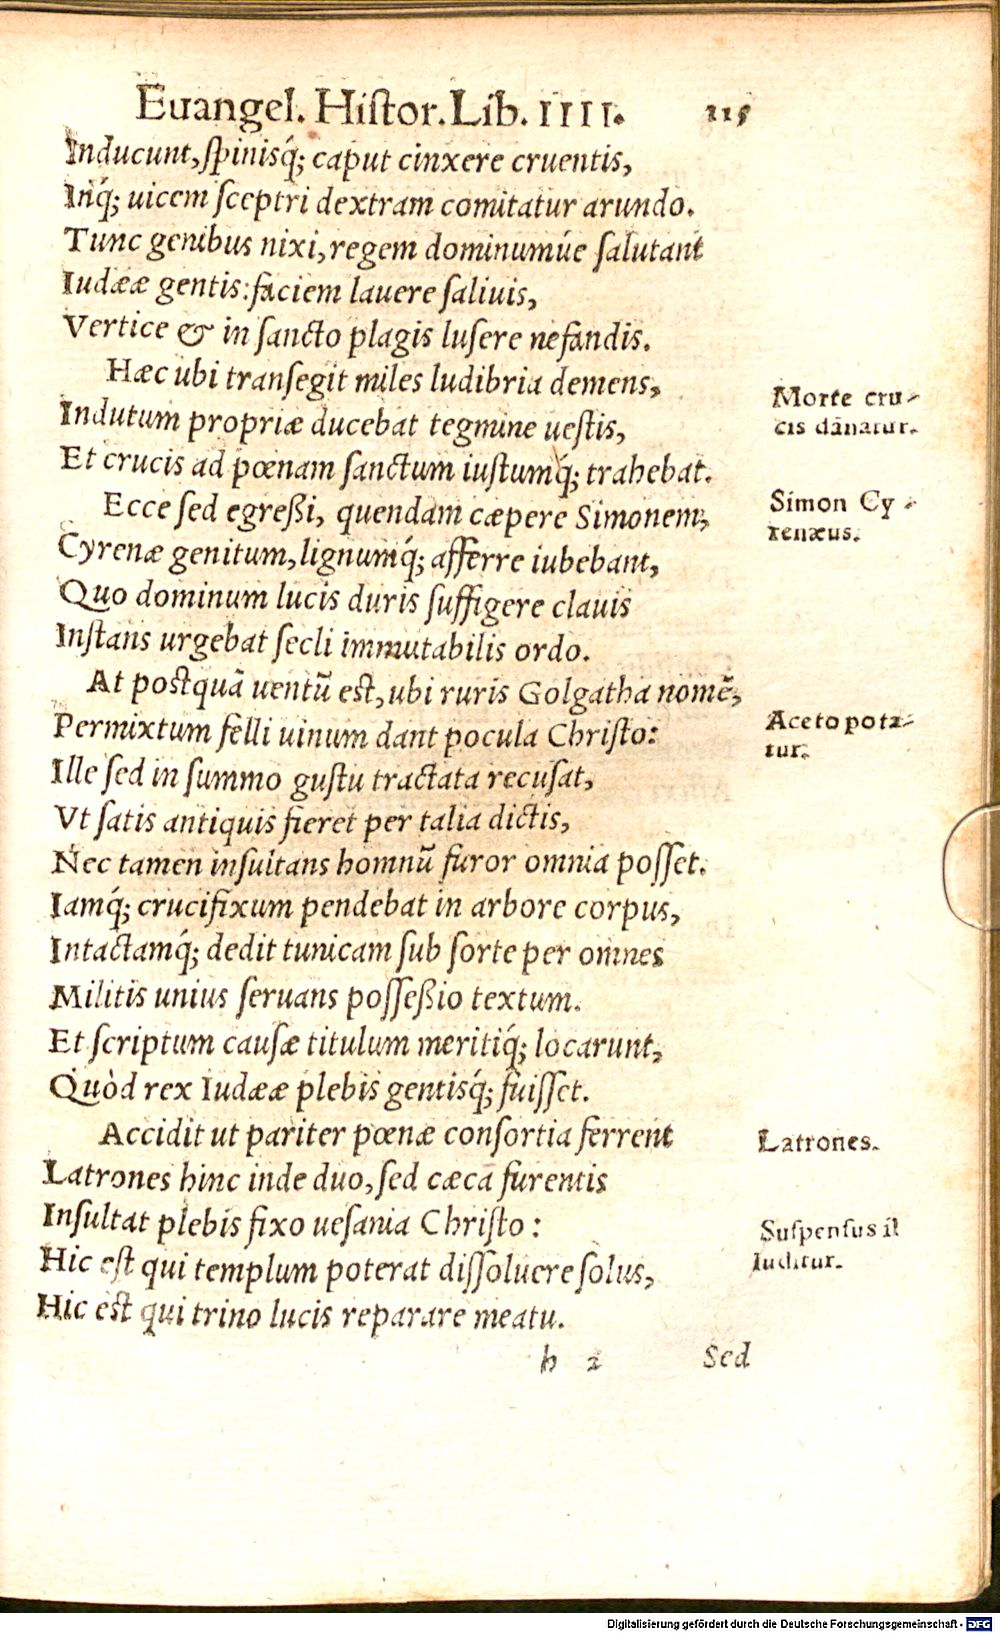 Euangel. Hiſtor. Lib. IIII. 115
Inducunt, ſpinisq́; caput cinxere cruentis,
Inq́; uicem ſceptri dextram comitatur arundo.
Tunc genibus nixi, regem dominumúe ſalutant
Iudææ gentis: faciem lauere ſaliuis,
Vertice & in ſancto plagis luſere nefandis.
Hæc ubi tranſegit miles ludibria demens,
Morte cru-
Indutum propriæ ducebat tegmine ueſtis,
cis dānatur.
Et crucis ad pœnam ſanctum iuſtumq́; trahebat.
Ecce ſed egreßi, quendam cæpere Simonem,
Simon Cy-
Cyrenæ genitum, lignumq́; afferre iubebant,
renæus.
Quo dominum lucis duris ſuffigere clauis
Inſtans urgebat ſecli immutabilis ordo.
At postquā uentū est, ubi ruris Golgatha nomē,
Permixtum felli uinum dant pocula Chriſto:
Aceto pota-
tur.
Ille ſed in ſummo guſtu tractata recuſat,
Vt ſatis antiquis fieret per talia dictis,
Nec tamen inſultans homnū furor omnia poſſet.
Iamq́; crucifixum pendebat in arbore corpus,
Intactamq́; dedit tunicam ſub ſorte per omnes
Militis unius ſeruans poſſeßio textum.
Et ſcriptum cauſæ titulum meritiq́; locarunt,
Quòd rex Iudææ plebis gentisq́; fuiſſet.
Accidit ut pariter pœnæ conſortia ferrent
Latrones.
Latrones hinc inde duo, ſed cæca furentis
Inſultat plebis fixo ueſania Chriſto:
Suſpenſus il
Hic est qui templum poterat diſſoluere ſolus,
luditur.
Hic est qui trino lucis reparare meatu.
h 2 Sed
Digitalisierung gefördert durch die Deutsche Forschungsgemeinschaft - DFG